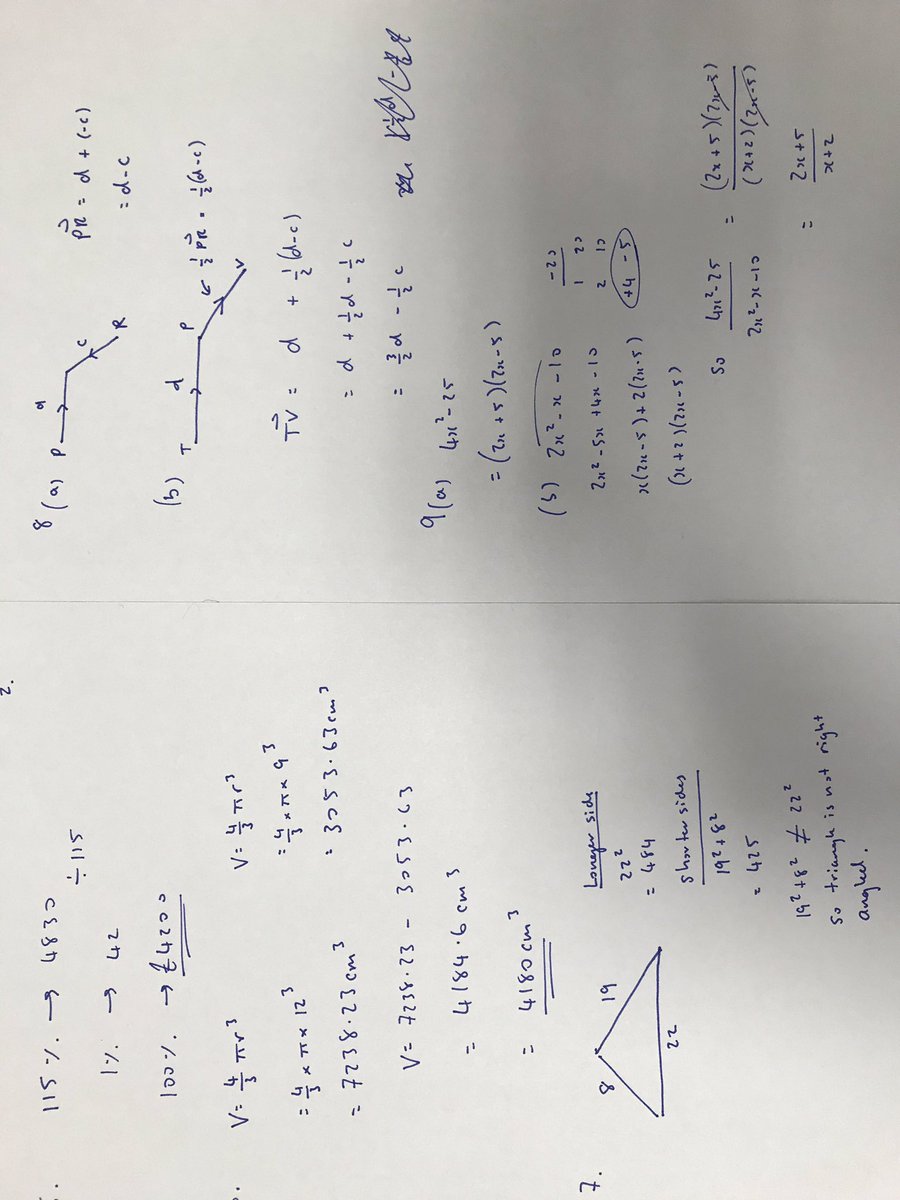 2.
115% → 4830
÷115
1% → 42
100% → £4200
V = 4/3 πr³
= 4/3 × π × 12³
= 7238.23 cm³
V = 4/3 πr³
= 4/3 × π × 9³
= 3053.63 cm³
V = 7238.23 - 3053.63
= 4184.6 cm³
= 4180 cm³
7.
8
19
22
Longer side
22²
= 484
Shorter sides
19² + 8²
= 425
19² + 8² ≠ 22²
so triangle is not right
angled.
8 (a) P d c R
PR = d + (-c)
= d - c
(b) T d P V
½PR = ½(d-c)
TV = d + ½(d-c)
= d + ½d - ½c
= 3/2 d - ½c
9 (a) 4x² - 25
= (2x + 5)(2x - 5)
(b) 2x² - x - 10
-20
1 20
2 10
+4 -5
2x² - 5x + 4x - 10
x(2x-5) + 2(2x-5)
(x+2)(2x-5)
so 4x² - 25 / 2x² - x - 10 = (2x+5)(2x-5) / (x+2)(2x-5)
= 2x+5 / x+2